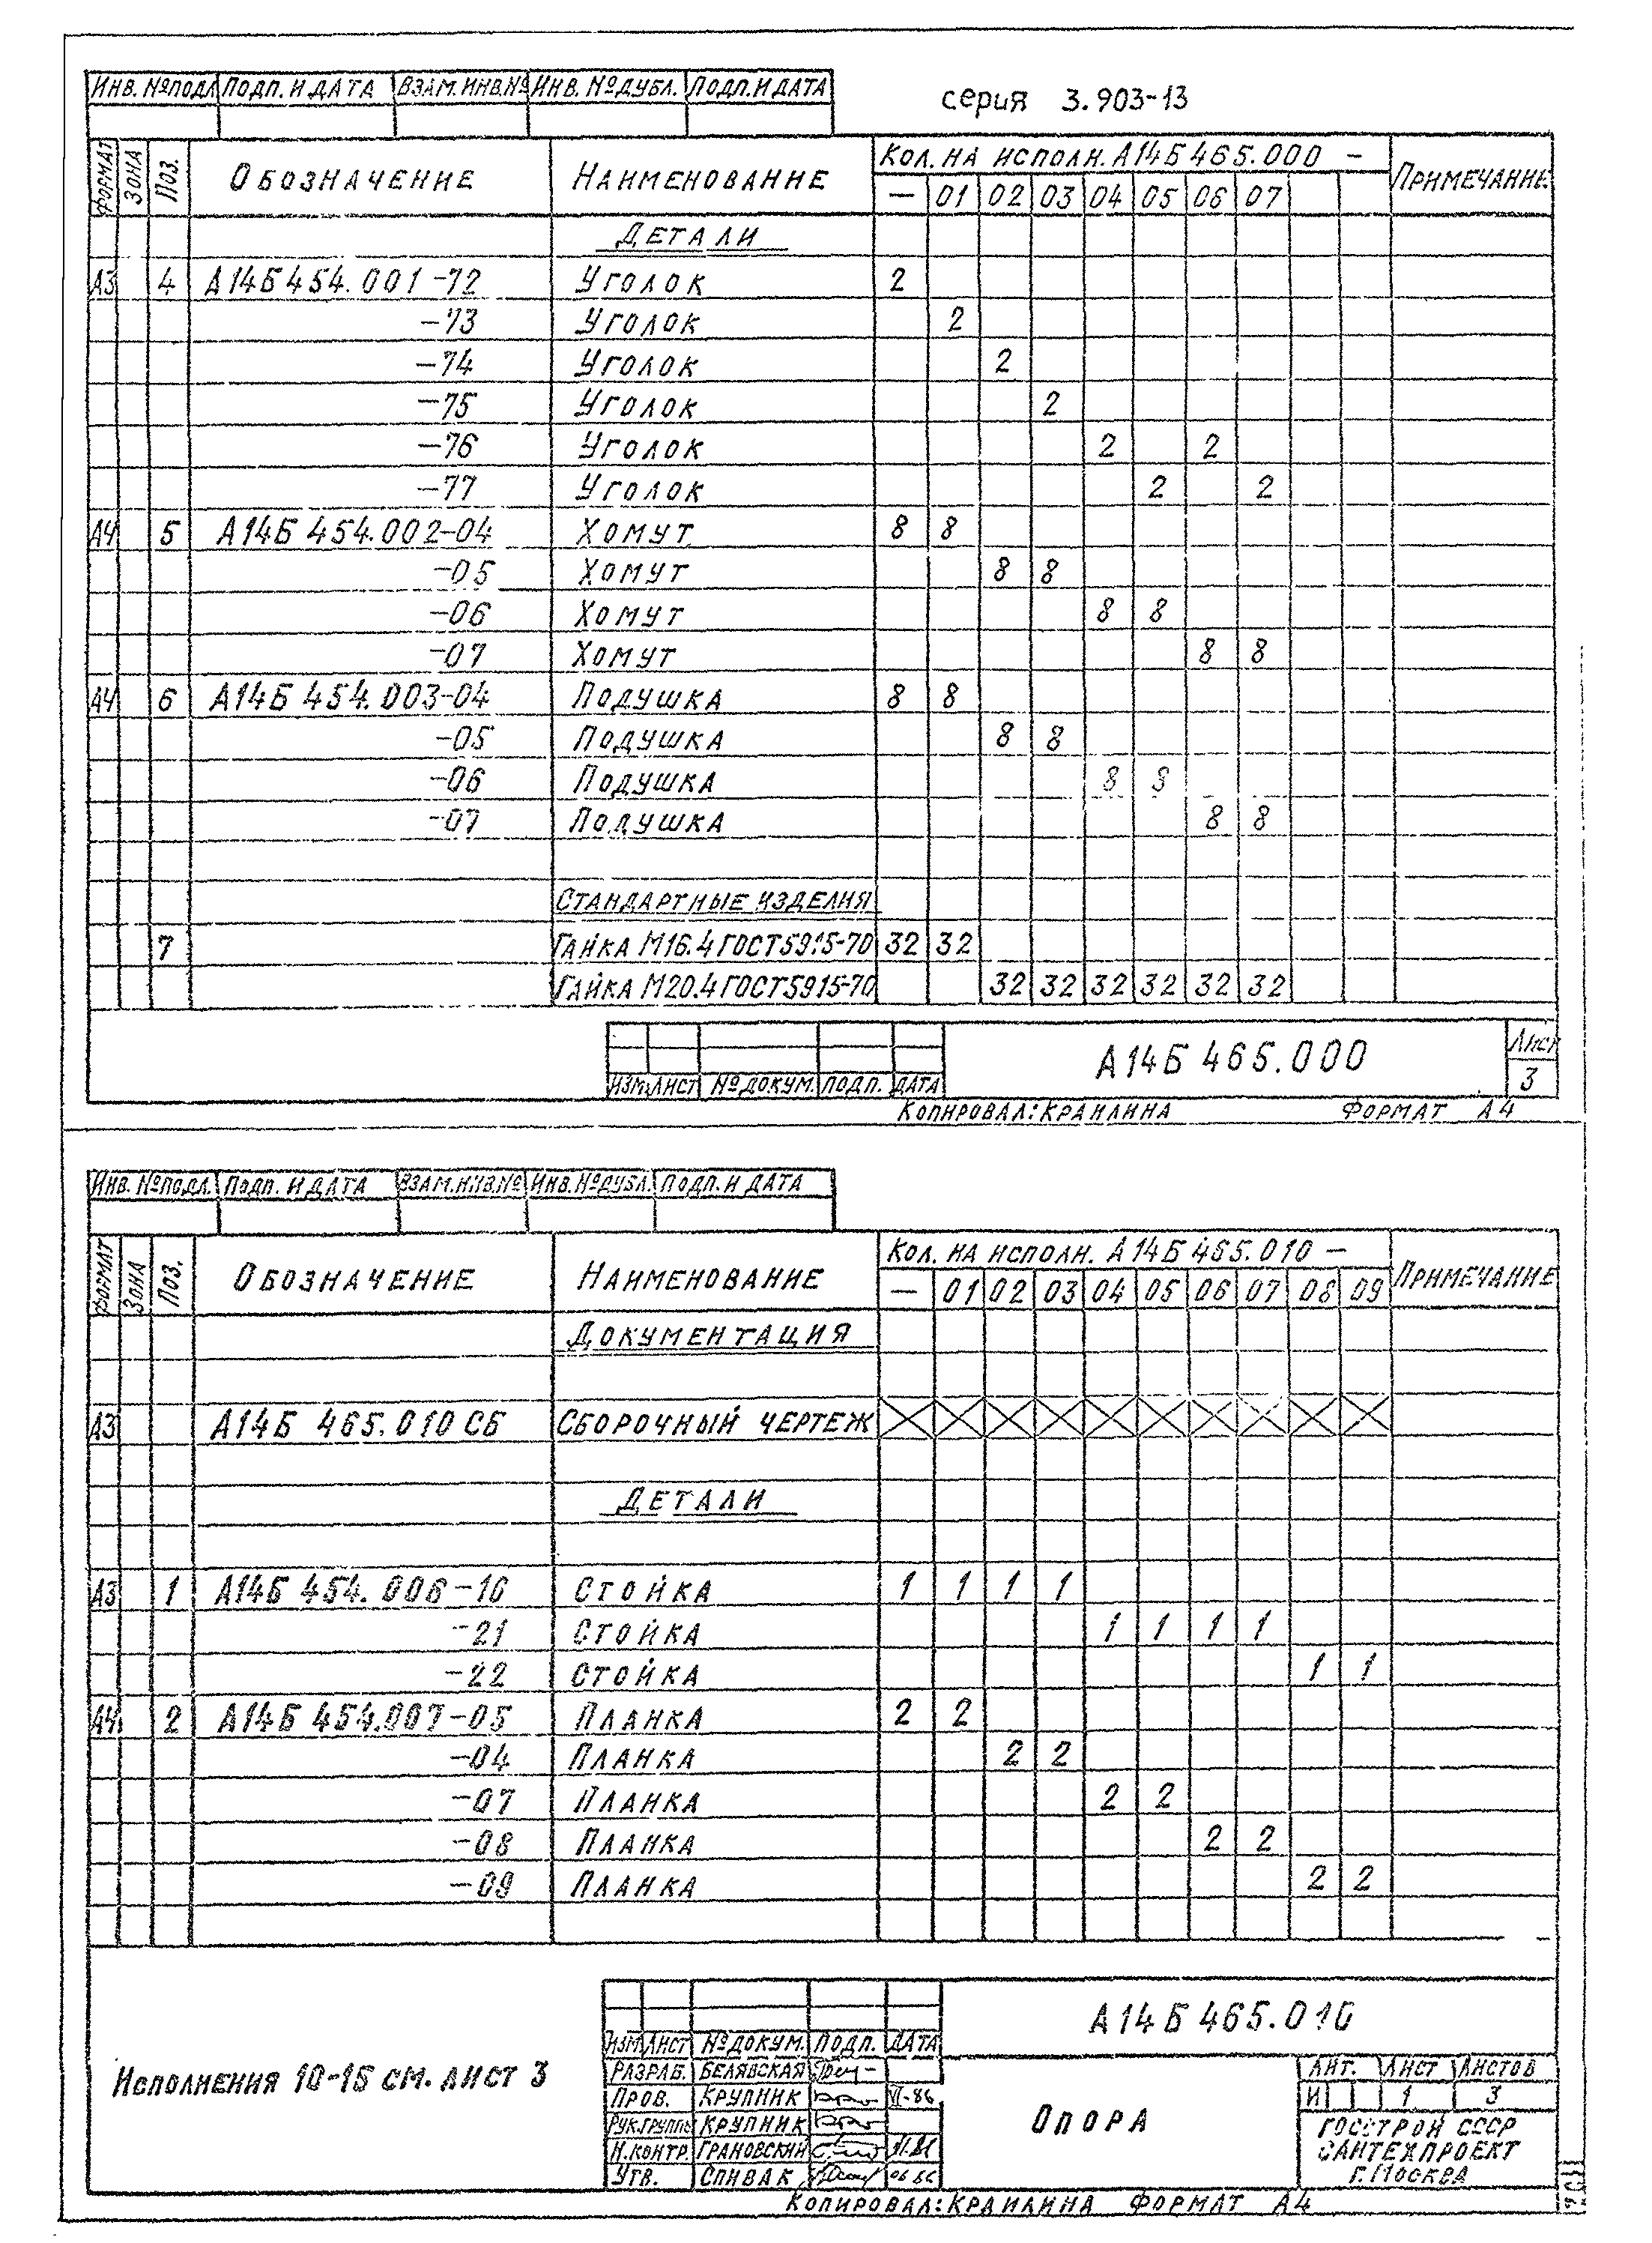 Инв. № подл Подп. и дата Взам. инв. № Инв. № дубл. Подп. и дата
серия 3.903-13
Формат Зона Поз. Обозначение Наименование Кол. на исполн. А14Б465.000 — Примечание
— 01 02 03 04 05 06 07
Детали
А3 4 А14Б454.001-72 Уголок 2
-73 Уголок 2
-74 Уголок 2
-75 Уголок 2
-76 Уголок 2 2
-77 Уголок 2 2
А4 5 А14Б 454.002-04 Хомут 8 8
-05 Хомут 8 8
-06 Хомут 8 8
-07 Хомут 8 8
А4 6 А14Б 454.003-04 Подушка 8 8
-05 Подушка 8 8
-06 Подушка 8 8
-07 Подушка 8 8
Стандартные изделия
7 Гайка М16.4 ГОСТ 5915-70 32 32
Гайка М20.4 ГОСТ 5915-70 32 32 32 32 32 32
А14Б 465.000 Лист
3
Изм Лист № докум. Подп. Дата
Копировал: Краилина Формат А4
Инв. № подл. Подп. и дата Взам. инв. № Инв. № дубл. Подп. и дата
Формат Зона Поз. Обозначение Наименование Кол. на исполн. А14Б 465.010 — Примечание
— 01 02 03 04 05 06 07 08 09
Документация
А3 А14Б 465.010 СБ Сборочный чертеж
Детали
А3 1 А14Б 454.006-10 Стойка 1 1 1 1
-21 Стойка 1 1 1 1
-22 Стойка 1 1
А4 2 А14Б 454.007-05 Планка 2 2
-04 Планка 2 2
-07 Планка 2 2
-08 Планка 2 2
-09 Планка 2 2
А14Б 465.010
Изм Лист № докум. Подп. Дата
Исполнения 10-15 см. лист 3
Разраб. Белявская
Пров. Крупник VI-86
Рук.группы Крупник
Н.контр. Грановский
Утв. Спивак
Опора
Лит. Лист Листов
И 1 3
Госстрой СССР
Сантехпроект
г. Москва
Копировал: Краилина Формат А4